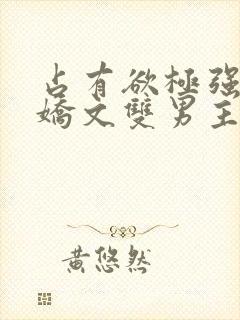 占有欲極强
嬌文雙男主
黃悠然